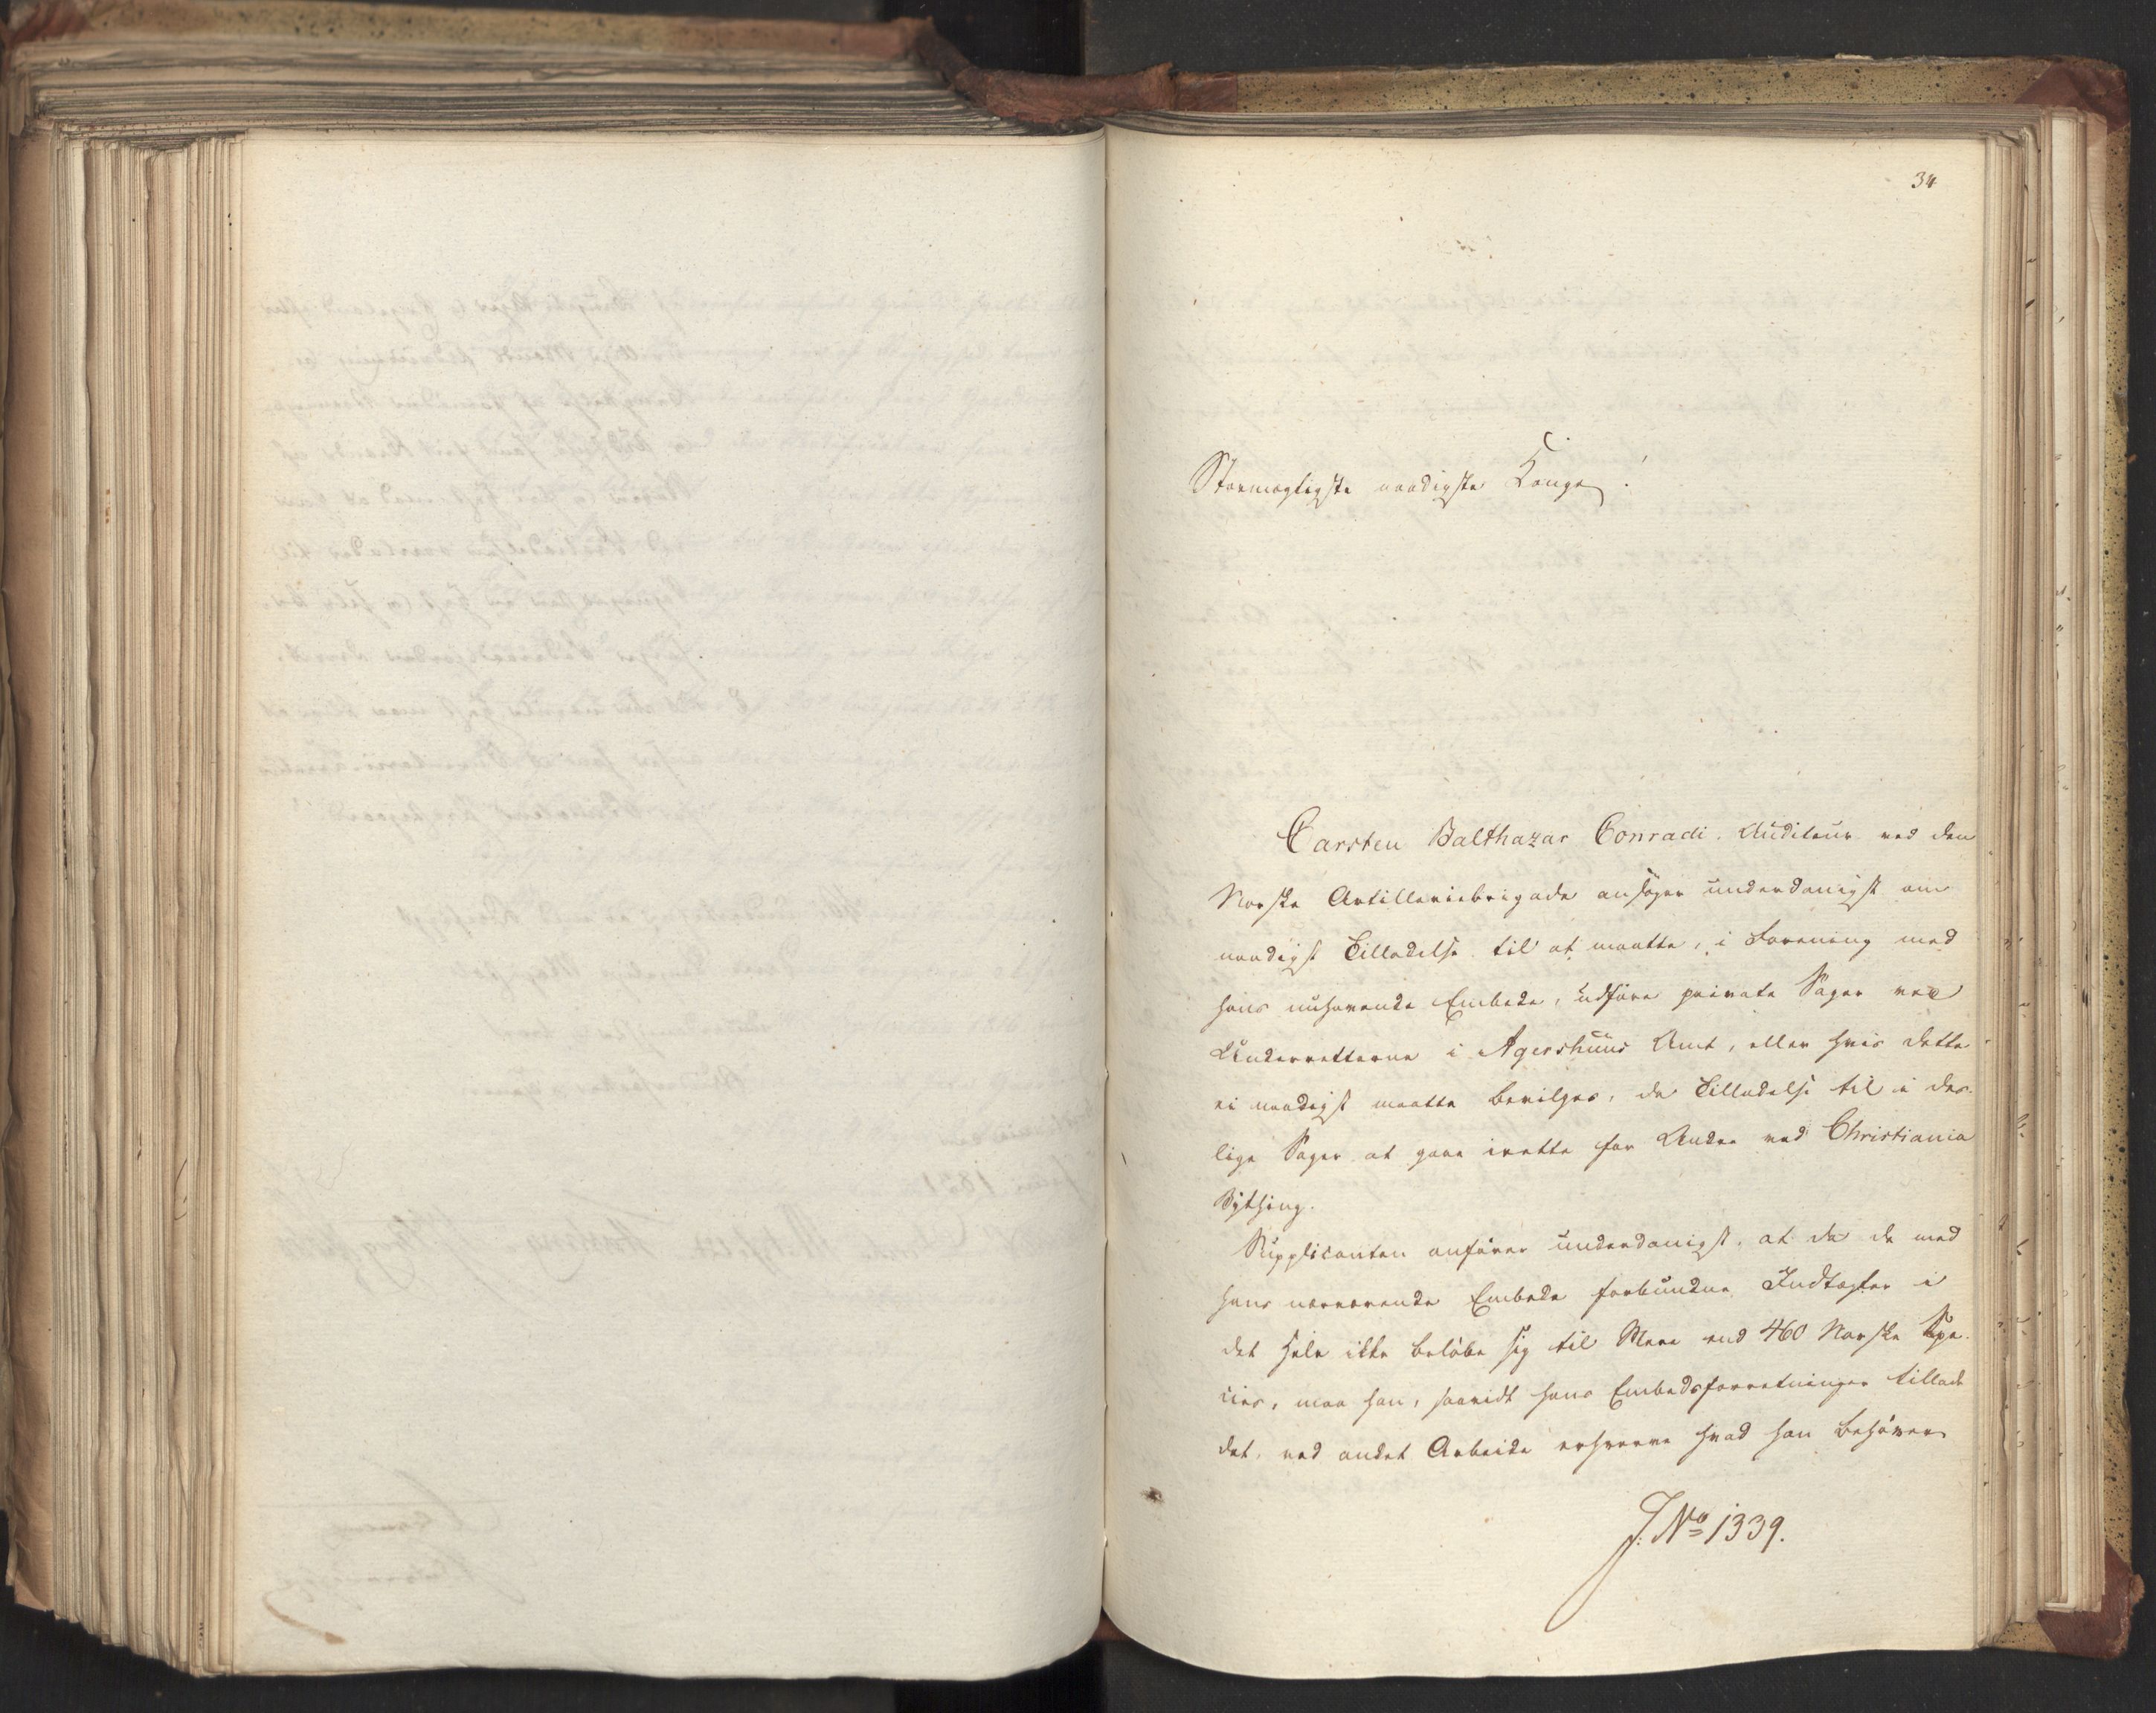 34
Stormægtigste naadigste Konge!
Carsten Balthazar Conradi, Auditeur ved den
Norske Artilleriebrigade ansøger underdanigst om
naadigst Tilladelse til at maatte, i Forening med
hans nuhavende Embede, udføre private Sager ved
Underretterne i Agershuus Amt, eller hvis dette
ei naadigst maatte bevilges, da Tilladelse til i des-
lige Sager at gaae irette for Andre ved Christiania
Bything.
Supplicanten anfører underdanigst, at da de med
hans nærværende Embede forbundne Indtægter i
det Hele ikke beløbe sig til Mere end 460 Norske Spe-
cier, maa han, saavidt hans Embedsforretninger tillade
det, ved andet Arbeide erhverve hvad han behøver
J. No 1339.